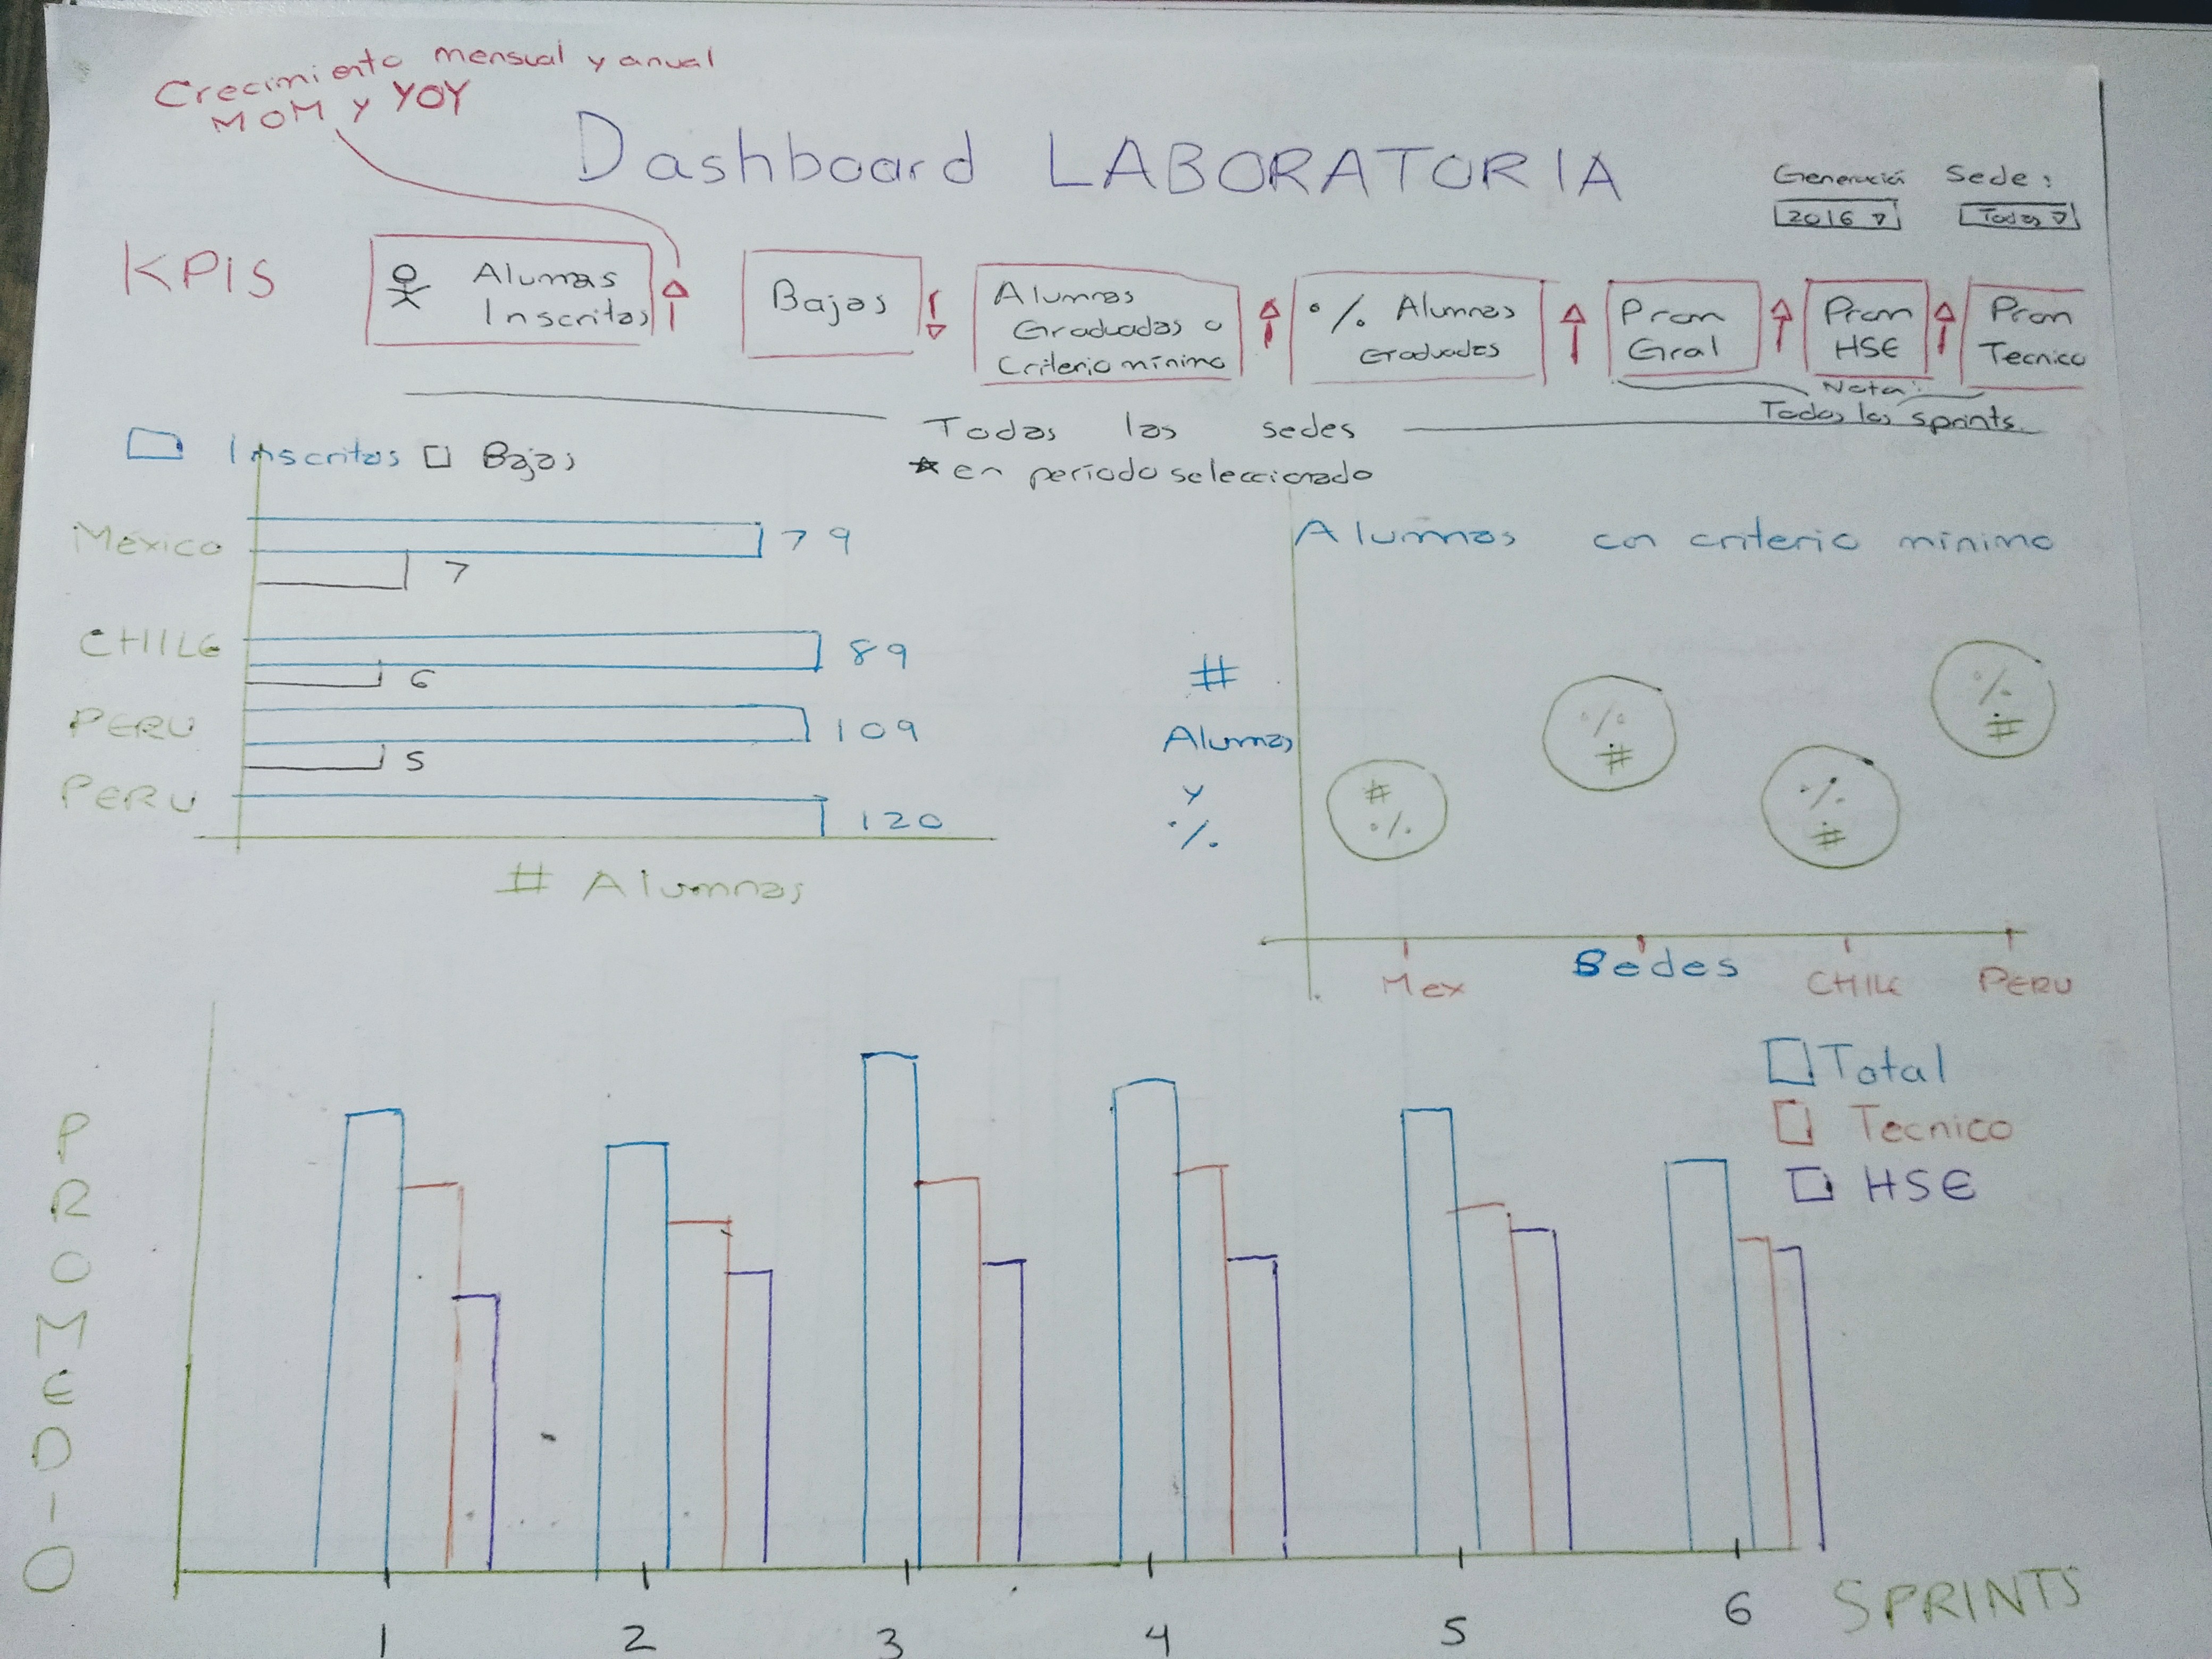 Crecimiento mensual y anual
MOM y YOY
Dashboard LABORATORIA
Generació Sede:
2016 Todas
KPIS
Alumnas
Inscritas
Bajas
Alumnas
Graduadas o
Criterio mínimo
% Alumnas
Graduadas
Prom
Gral
Prom
HSE
Prom
Tecnico
Nota:
Todos los sprints
Todas las sedes
* en período seleccionado
Inscritas Bajas
Mexico 79
7
CHILE 89
6
PERU 109
5
PERU 120
# Alumnas
Alumnas con criterio mínimo
#
Alumnas
y
%
# %
% #
% #
% #
Sedes
Mex CHILE PERU
PROMEDIO
Total
Tecnico
HSE
1 2 3 4 5 6 SPRINTS